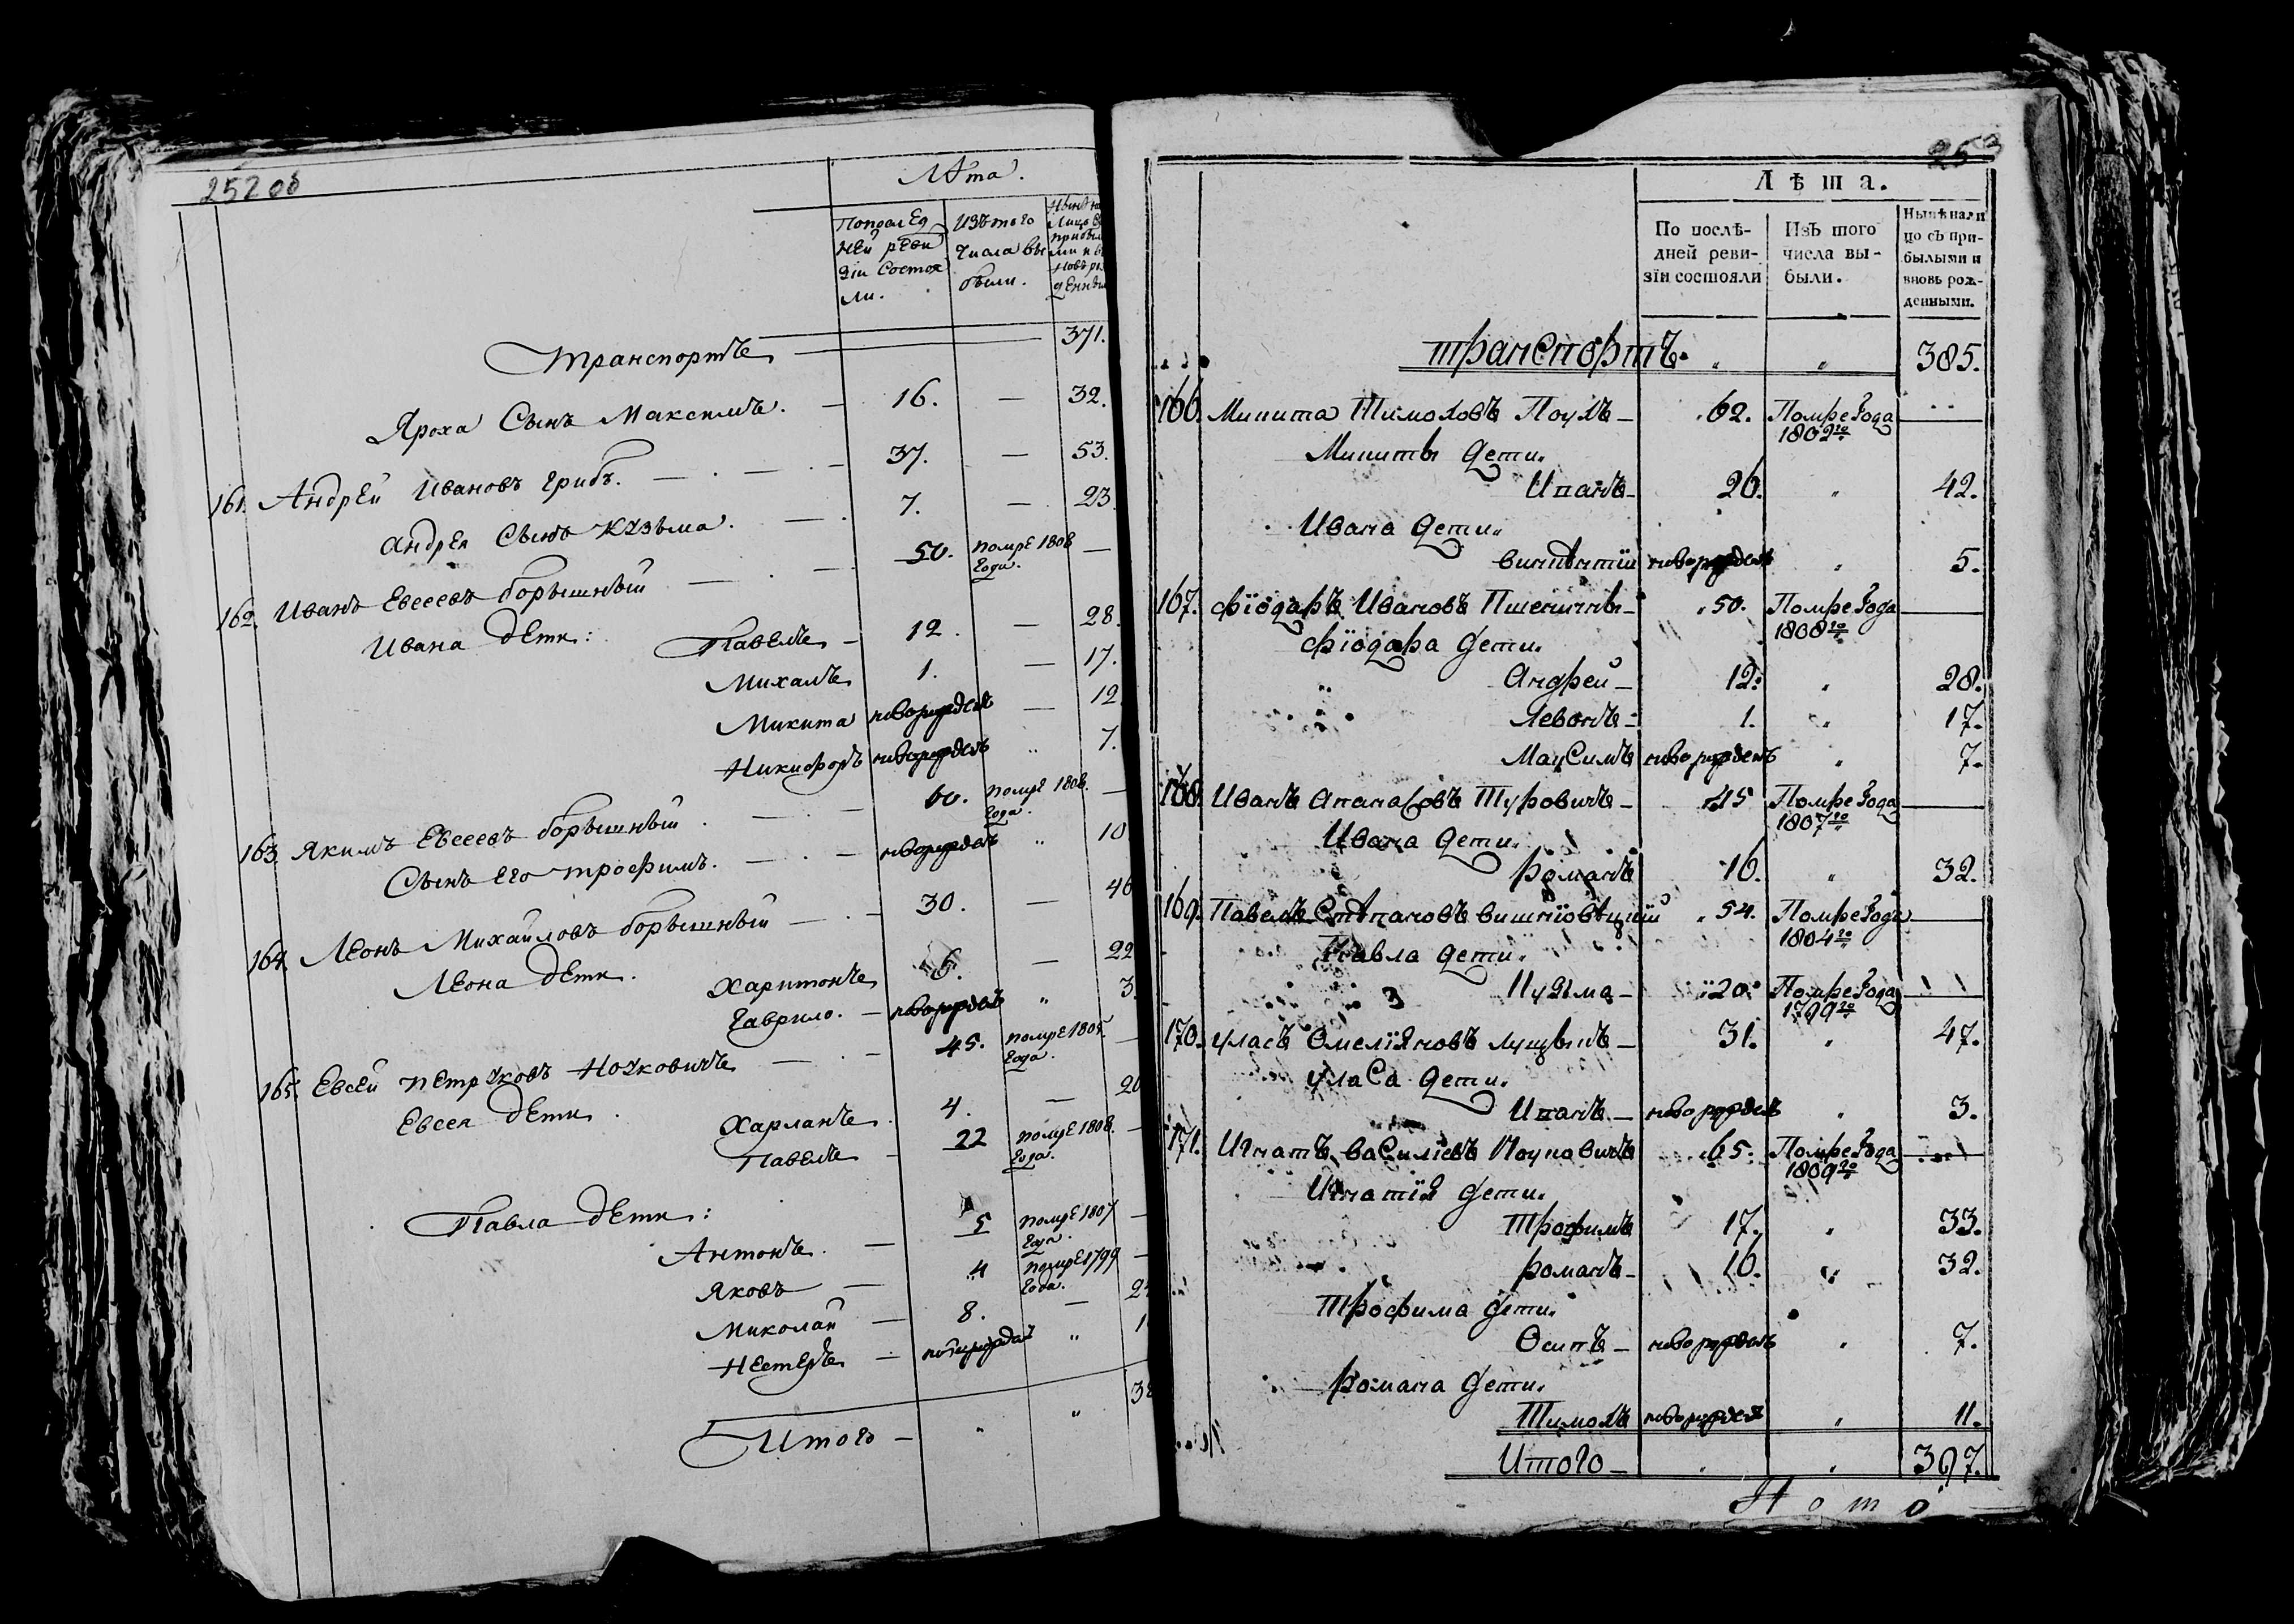 252 об
Лѣта.
Попослед
ней реви
зіи состоя
ли.
Изъ того
числа вы
были.
транспортъ 371.
Яроха Сынъ Максимъ. 16. — 32.
161. Андрей Ивановъ грибъ. 37. — 53.
андрея Сынъ Кузьма. 7. — 23.
162. Иванъ Евсеевъ борышный 50. помре 1808 года. —
Ивана дети:
Павелъ 12. — 28.
Михалъ 1. — 17.
Микита новорожденъ — 12
Никифоръ новорожденъ „ 7.
163. Якимъ Евсеевъ борышный 60. помре 1808. года. —
Сынъ его трофимъ. новорожденъ „ 10
164. Леонъ Михайловъ борышный 30. — 46
Леона дети.
Харитонъ 6. — 22
Гаврило. новорожденъ „ 3.
165. Евсей петруковъ 45. помре 1805. года. —
Евсея дети.
Харланъ 4. — 20
Павелъ 22 помре 1808. года. —
Павла дети:
Антонъ. 5 помре 1807 года. —
Яковъ 4 помре 1799 года. —
Миколай 8. — 24
Нестеръ новорожденъ „ 1
Итого „ „ 38
253
Лѣта.
По послѣ-
дней реви-
зіи состояли
Изъ того
числа вы-
были.
Нынѣ нали
цо съ при-
былыми и
вновь рож-
денными.
транспортъ. „ „ 385.
166. Микита Тимоховъ 62. Помре года 1802го —
Микиты дети.
Иванъ 26. „ 42.
Ивана дети.
викентій новорожденъ „ 5.
167. фіодаръ Ивановъ 50. Помре года 1808го —
фіодара дети.
Андрей 12. „ 28.
Левонъ 1. „ 17.
Максимъ новорожденъ „ 7.
168. Иванъ Апанасовъ Туровичъ 45 Помре года 1807го —
Ивана дети.
романъ 16. „ 32.
169. Павелъ Стѣпановъ 54. Помре года 1804го —
Павла дети.
Кузьма 20. Помре года 1799го —
170. уласъ Омеліяновъ 31. „ 47.
уласа дети.
Иванъ новорожденъ „ 3.
171. Игнатъ василіевъ 65. Помре года 1809го —
Игнатія дети.
Трофимъ 17. „ 33.
романъ 16. „ 32.
Трофима дети.
Осипъ новорожденъ „ 7.
романа дети.
Тимохъ новорожденъ „ 11.
Итого „ „ 397.